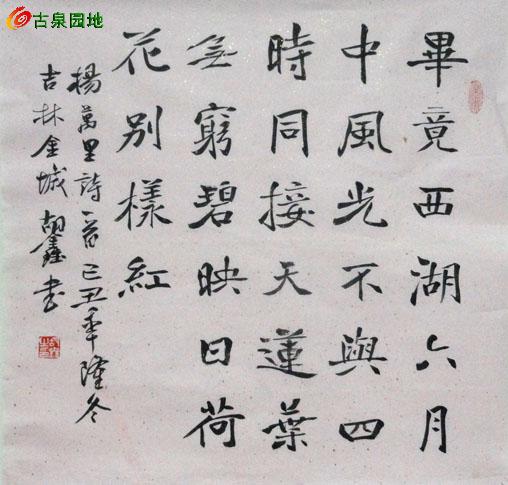 古泉园地
畢竟西湖六月
中風光不與四
時同接天蓮葉
無窮碧映日荷
花别樣紅
楊萬里詩一首己丑年隆冬
吉林金城胡鑫书